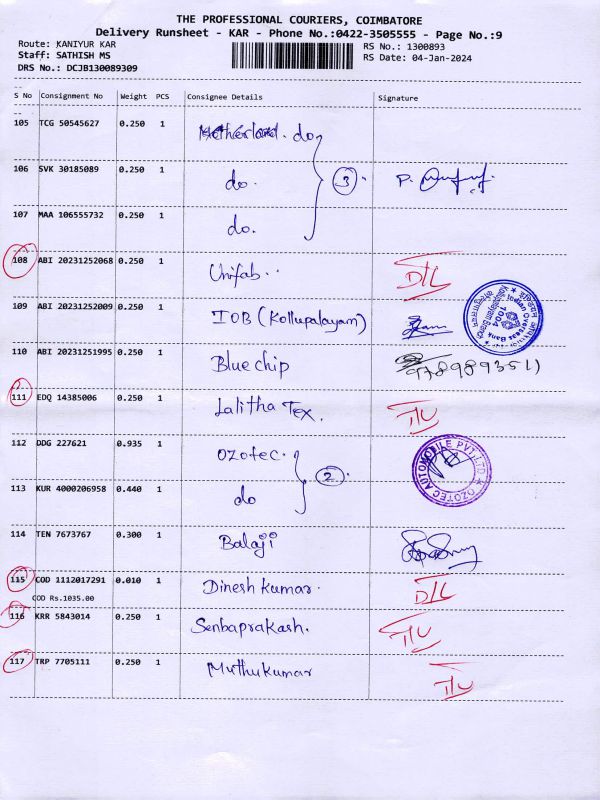 THE PROFESSIONAL COURIERS, COIMBATORE
Delivery Runsheet - KAR - Phone No.:0422-3505555 - Page No.:9
Route: KANIYUR KAR
RS No.: 1300893
Staff: SATHISH MS
RS Date: 04-Jan-2024
DRS No.: DCJB130089309
S No Consignment No Weight PCS Consignee Details Signature
105 TCG 50545627 0.250 1 Motherland. do
106 SVK 30185089 0.250 1 do. 3 P.
107 MAA 106555732 0.250 1 do.
108 ABI 20231252068 0.250 1 Unifab.. D/L
109 ABI 20231252009 0.250 1 IOB (Kollupalayam)
Indian Overseas Bank
1004
110 ABI 20231251995 0.250 1 Blue chip
111 EDQ 14385006 0.250 1 Lalitha Tex. I/U
112 DDG 227621 0.935 1 Ozotec.
2
OZOTEC AUTOMOBILE PVT.LTD
113 KUR 4000206958 0.440 1 do
114 TEN 7673767 0.300 1 Balaji
115 COD 1112017291 0.010 1 Dinesh kumar. D/L
COD Rs.1035.00
116 KRR 5843014 0.250 1 Senbaprakash. I/U
117 TRP 7705111 0.250 1 Muthukumar I/U